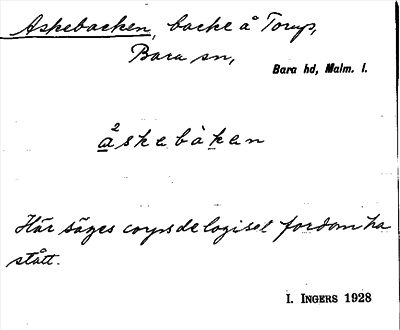 Askebacken, backe å Torup,
Bara sn,
Bara hd, Malm. l.
a²skebàken
Här säges corps de logiset fordom ha
stått.
I. INGERS 1928